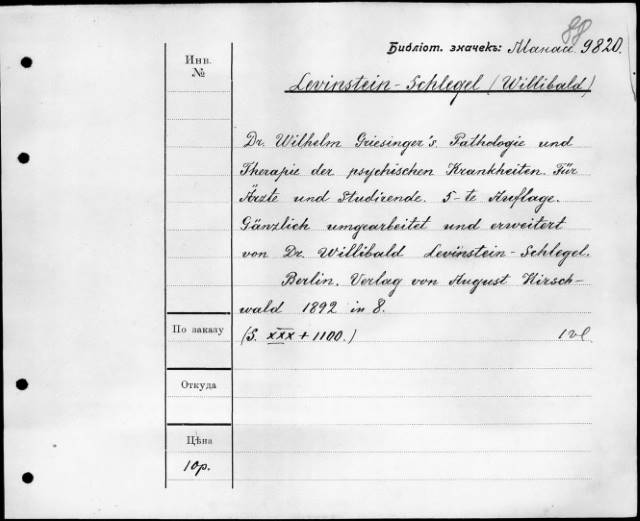 88
Библіот. значекъ: Манас. 9820.
Инв.
№
Levinstein-Schlegel (Willibald)
Dr. Wilhelm Griesinger's Pathologie und
Therapie der psychischen Krankheiten. Für
Ärzte und Studirende. 5-te Auflage.
Gänzlich umgearbeitet und erweitert
von Dr. Willibald Levinstein-Schlegel.
Berlin. Verlag von August Hirsch-
wald 1892 in 8.
По заказу
(S. XXX + 1100.) 1 vl.
Откуда
Цѣна
10р.